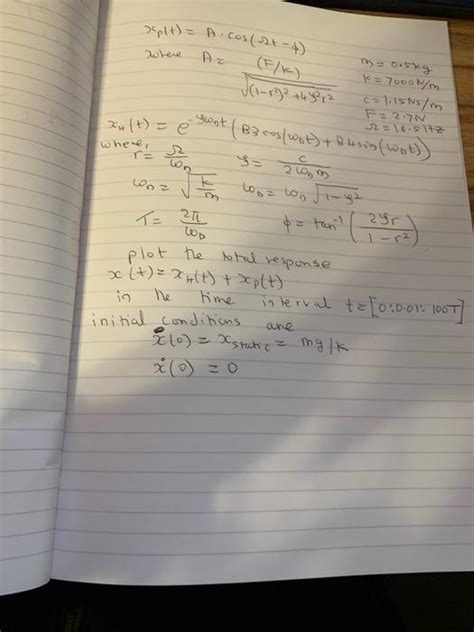 xp(t) = A. cos(Ωt - ϕ)
where A = (F/K) / √((1-r²)² + 4ζ²r²)
m = 0.5kg
K = 7000N/m
c = 1.15Ns/m
F = 2.7N
Ω = 18.5Hz
xH(t) = e^-ζωnt (B3 cos(ωDt) + B4 sin(ωDt))
where,
r = Ω/ωn ζ = c/2ωnm
ωn = √(k/m) ωD = ωn √(1-ζ²)
T = 2π/ωD ϕ = tan⁻¹ (2ζr / 1-r²)
plot the total response
x(t) = xH(t) + xp(t)
in the time interval t = [0:0.01:100T]
initial conditions are
x(0) = xstatic = mg/k
ẋ(0) = 0